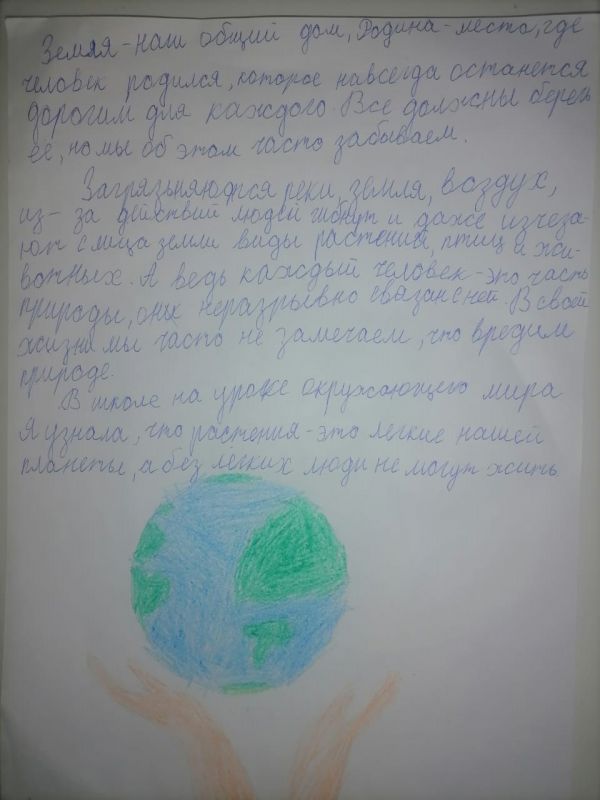 Земля - наш общий дом, Родина - место, где
человек родился, которое навсегда останется
дорогим для каждого. Все должны беречь
её, но мы об этом часто забываем.
Загрязьняюфся реки, земля, воздух,
из-за действий людей гибнут и даже изчеза-
ют с лица земли виды растений, птиц и жи-
вотных. А ведь каждый человек - это часть
природы, он неразрывно связан с ней. В своей
жизни мы часто не замечаем, что вредим
природе.
В школе на уроке окружающего мира
я узнала, что растения - это легкие нашей
планеты, а без легких люди не могут жить